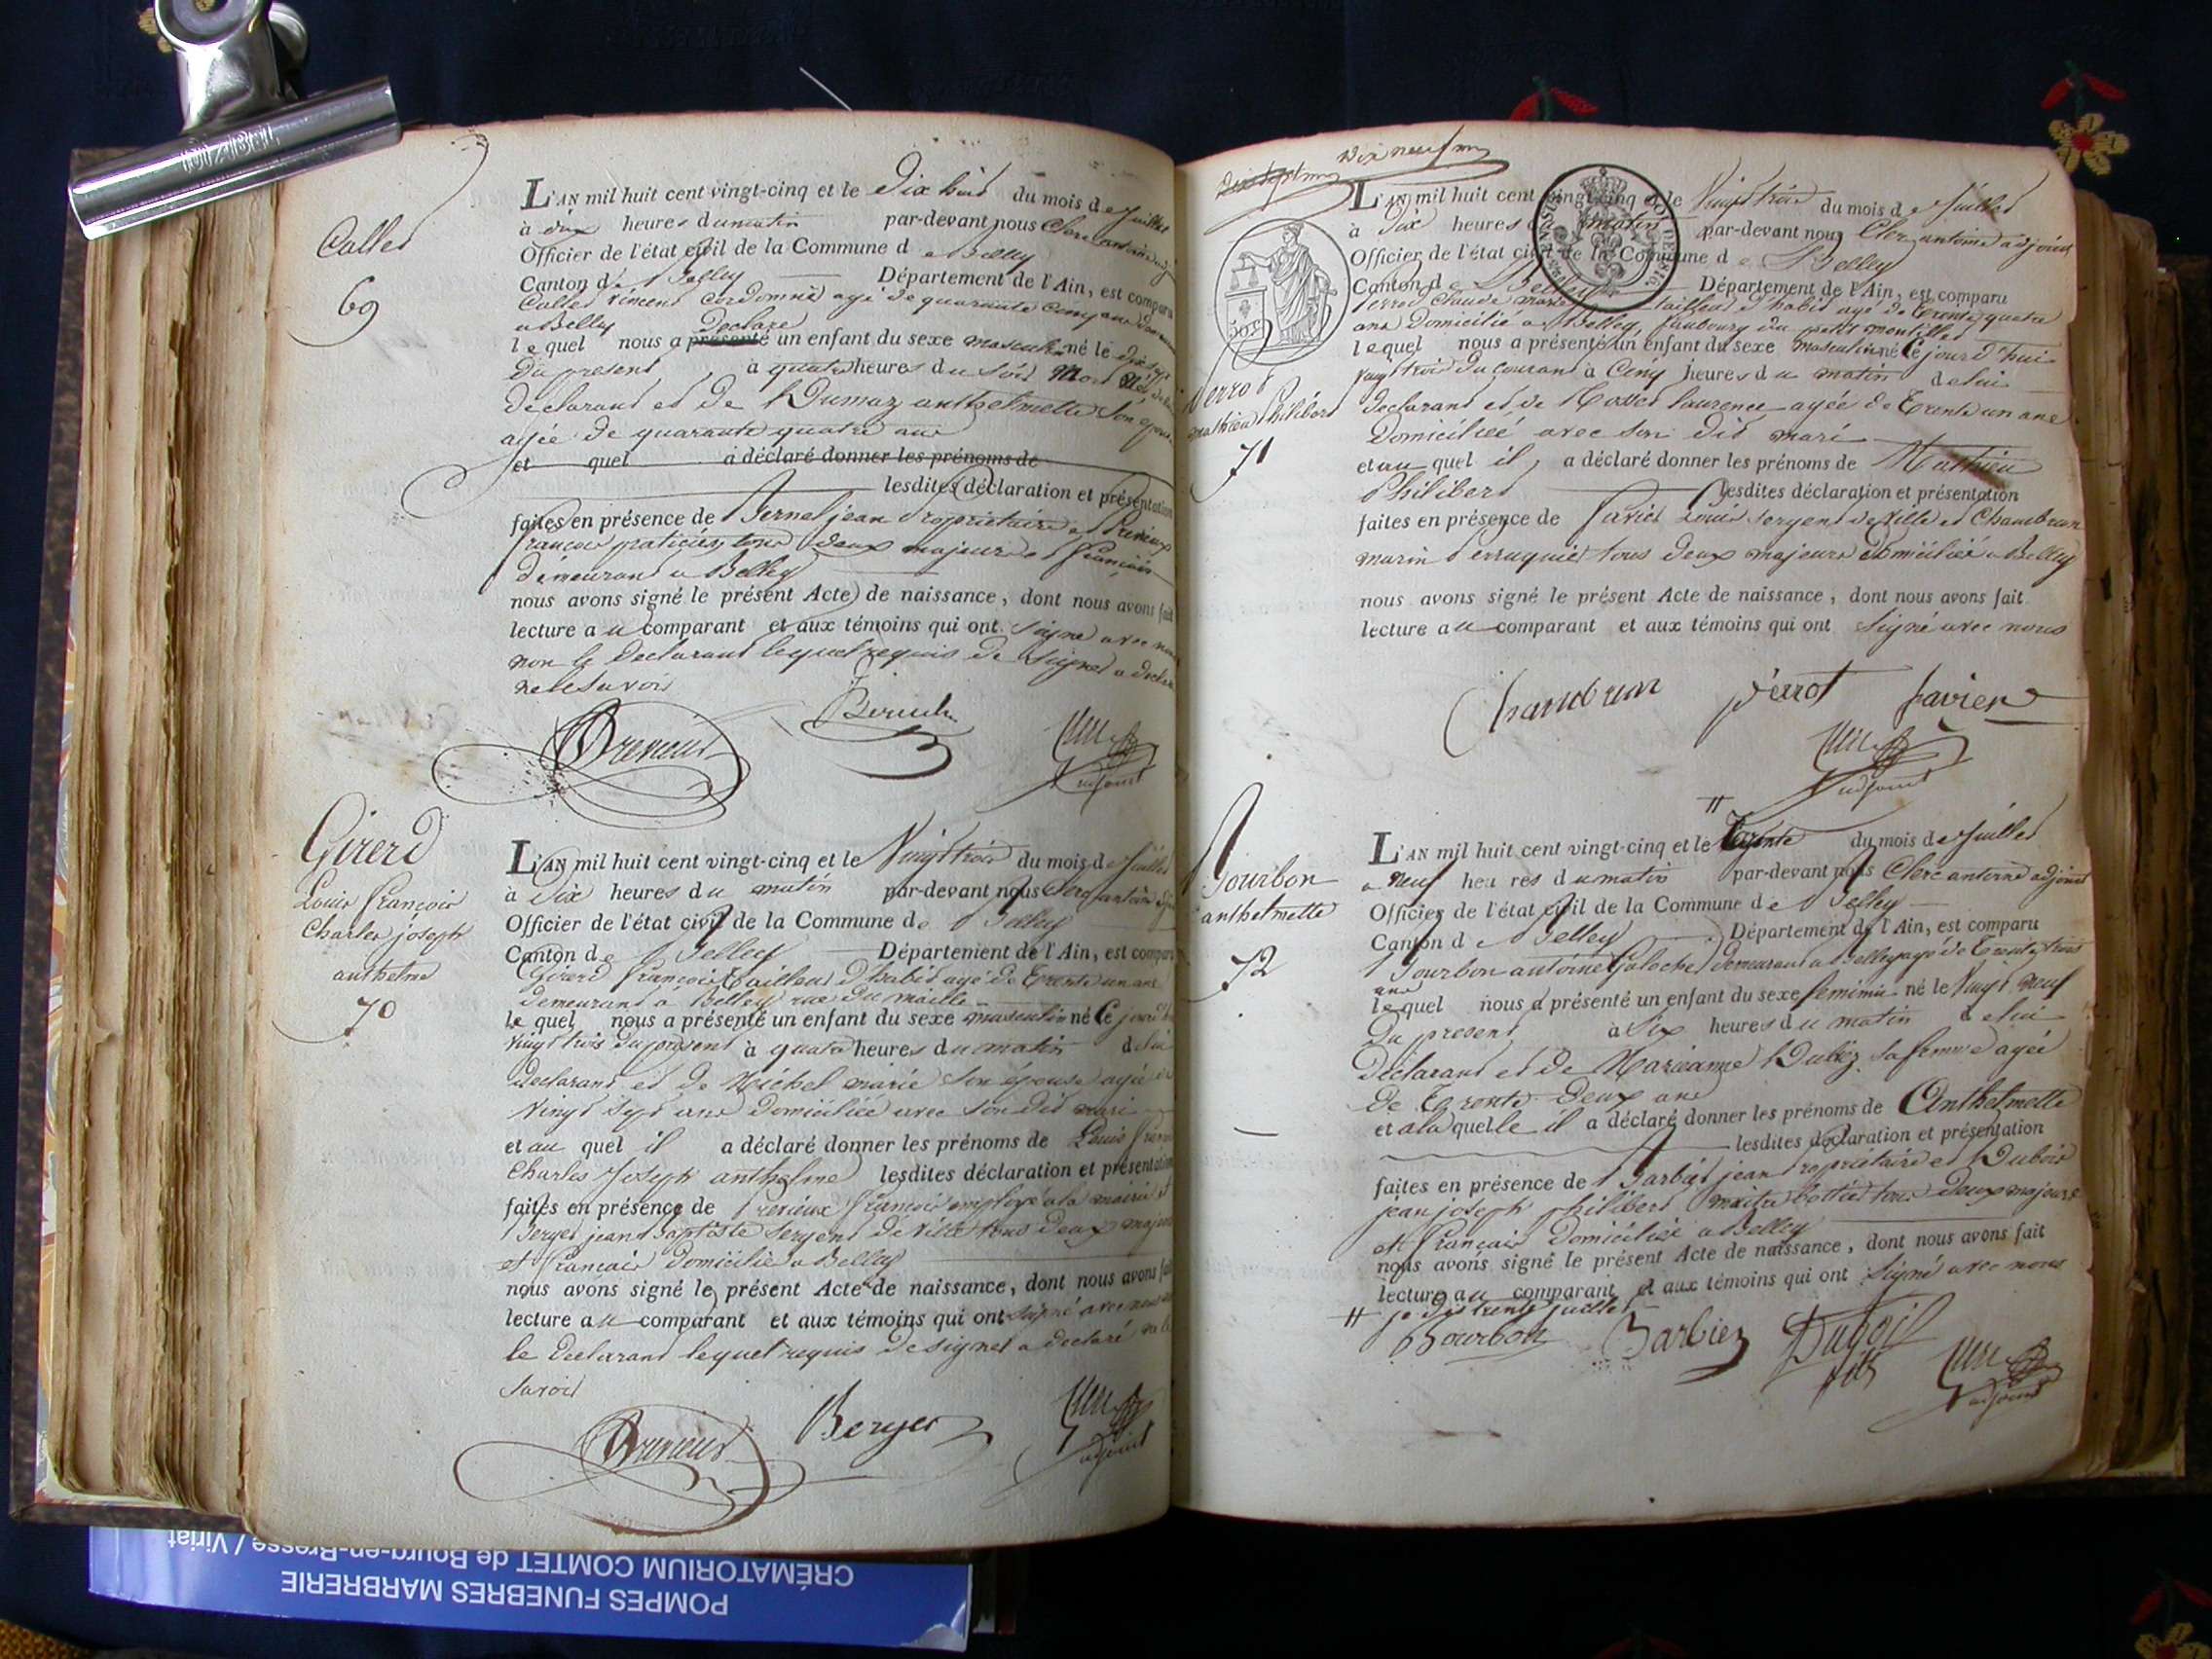 Callet
69
L'AN mil huit cent vingt-cinq et le Dix huit du mois de juillet
à dix heures du matin par-devant nous Clerc antoine
Officier de l'état civil de la Commune de Belley
Canton de Belley Département de l'Ain, est comparu
Callet vincent cordonnié agé de quarante cinq ans
a Belley Declare
lequel nous a présenté un enfant du sexe masculin né le dix sept
Du present à quatre heures du soir Mort Né, de
declarant et de Dumaz anthelmette son epouse
agée de quarante quatre ans
et quel a déclaré donner les prénoms de
lesdites déclaration et présentation
faites en présence de Bernel jean Propriétaire et Prenieux
francois praticien, tous deux majeurs et francais
demeurant a Belley
nous avons signé le présent Acte de naissance, dont nous avons fait
lecture au comparant et aux témoins qui ont signé avec nous
non le Declarant lequel requis de signer a declaré
ne le savoir
adjoint
Girerd
Louis francois
Charles joseph
anthelme
70
L'AN mil huit cent vingt-cinq et le Vingt trois du mois de juillet
à Dix heures du matin par-devant nous Clerc antoine
Officier de l'état civil de la Commune de Belley
Canton de Belley Département de l'Ain, est comparu
Girerd francois tailleur d'habit agé de trente un ans
demeurant a Belley rue du maille
le quel nous a présenté un enfant du sexe masculin né Ce jourd'hui
vingt trois du present à quatre heures du matin de lui
declarant et de Michel marie son épouse agée de
vingt sept ans domiciliée avec son dit mari
et au quel il a déclaré donner les prénoms de Louis francois
Charles Joseph anthelme lesdites déclaration et présentation
faites en présence de Prenieux francois employé a la mairie et
Berger jean Baptiste sergent de ville tous deux majeurs
et francais domiciliés a Belley
nous avons signé le présent Acte de naissance, dont nous avons fait
lecture au comparant et aux témoins qui ont signé avec nous
le declarant lequel requis de signer a declaré ne le
savoir
Berger
adjoint
Dix neuf
L'AN mil huit cent vingt-cinq et le Vingt trois du mois de juillet
à Dix heures du matin par-devant nous Clerc antoine adjoint
Officier de l'état civil de la Commune de Belley
Canton de Belley Département de l'Ain, est comparu
Perrot Claude marie tailleur d'habit agé de trente quatre
ans domicilié a Belley, faubourg du
lequel nous a présenté un enfant du sexe masculin né Ce jourd'hui
vingt trois du courant à Cinq heures du matin de lui
Perrot
mathieu philibert
71
declarant et de Rosset laurence agée de trente un ans
domiciliée avec son dit mari
et au quel il a déclaré donner les prénoms de Mathieu
Philibert lesdites déclaration et présentation
faites en présence de favier Louis sergent de ville et Chambrun
marin perruquier tous deux majeurs domiciliés a Belley
nous avons signé le présent Acte de naissance, dont nous avons fait
lecture au comparant et aux témoins qui ont signé avec nous
Chambrun perrot favier
adjoint
Bourbon
anthelmette
72
L'AN mil huit cent vingt-cinq et le trente du mois de juillet
à neuf heures du matin par-devant nous Clerc antoine adjoint
Officier de l'état civil de la Commune de Belley
Canton de Belley Département de l'Ain, est comparu
Bourbon antoine Galoché demeurant a Belley agé de trente trois
ans
lequel nous a présenté un enfant du sexe feminin né le Vingt neuf
Du present à six heures du matin de lui
Declarant et de Marianne Dubiez sa femme agée
de trente deux ans
et a la quelle il a déclaré donner les prénoms de Anthelmette
lesdites déclaration et présentation
faites en présence de Barbier jean Propriétaire et Dubois
jean joseph philibert maitre bottier tous deux majeurs
et francais domiciliés a Belley
nous avons signé le présent Acte de naissance, dont nous avons fait
lecture au comparant et aux témoins qui ont signé avec nous
je dis trente juillet
Bourbon Barbier
fils
adjoint
CRÉMATORIUM COMTET de Bourg-en-Bresse / Viriat
POMPES FUNEBRES MARBRERIE